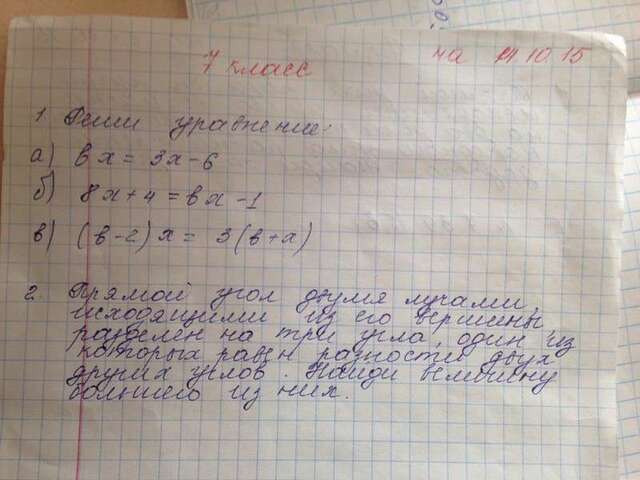 7 класс на 14 10 15
1. Реши уравнение:
а) вх = 3х-6
б) 8х+4 = вх -1
в) (в-2)х = 3(в+х)
2. Прямой угол двумя лучами,
исходящими из его вершины
разделен на три угла, один из
которых равен разности двух
других углов. Найди величину
большего из них.